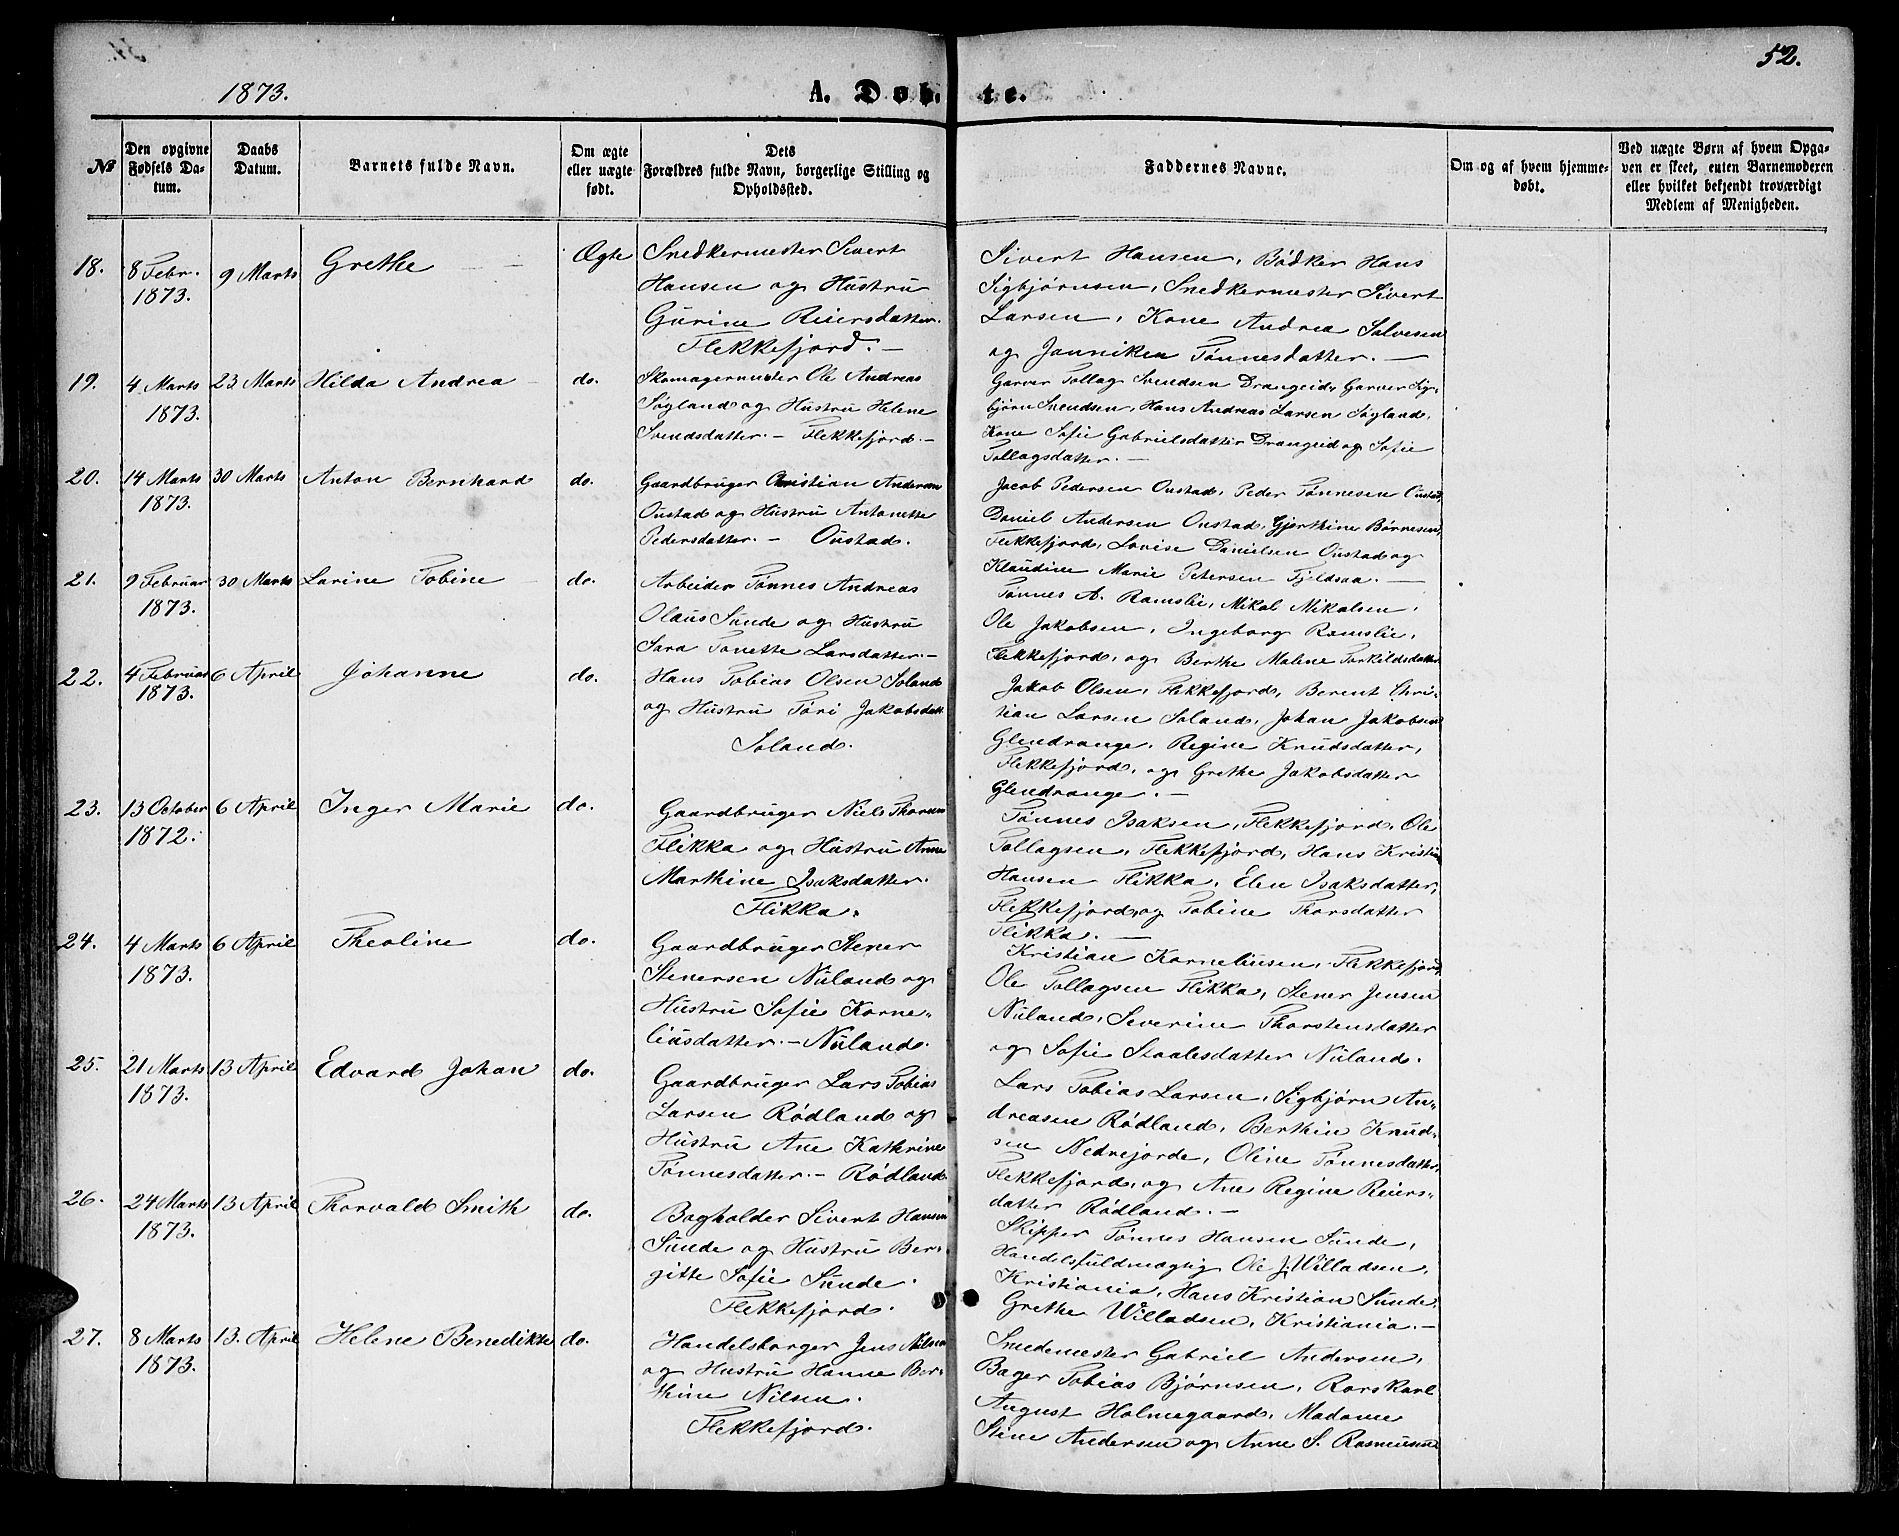 52.
1873.
A. Døbte.
№
Den opgivne Fødsels Datum.
Daabs Datum.
Barnets fulde Navn.
Om ægte eller uægte født.
Dets Forældres fulde Navn, borgerlige Stilling og Opholdssted.
Faddernes Navne.
Om og af hvem hjemmedøbt.
Ved uægte Børn af hvem Opgaven er skeet, enten Barnemoderen eller hvilket bekjendt troværdigt Medlem af Menigheden.
18.
8 Febr.
1873.
9 Marts
Grethe
Ægte
Snedkermester Sivert
Hansen og Hustru
Gurine Reiersdatter.
Flekkefjord. —
Sivert Hansen, Bødker Hans
Sigbjørnsen, Snedkermester Sivert
Larsen, Kone Andrea Salvesen
og Janniken Tønnesdatter. —
19.
4 Marts
1873.
23 Marts
Hilda Andrea
do.
Skomagermester Ole Andreas
Søyland og Hustru Helene
Svendsdatter. — Flekkefjord. —
Garver Tollag Svendsen Drangeid, Garver Sig-
bjørn Svendsen, Hans Andreas Larsen Søyland,
Kone Sofie Gabrielsdatter Drangeid og Sofie
Tollagsdatter. —
20.
14 Marts
1873.
30 Marts
Anton Bernhard
do.
Gaardbruger Christian Andersen
Oustad og Hustru Antonette
Pedersdatter. — Oustad.
Jacob Pedersen Oustad, Peder Tønnesen Oustad
Daniel Andersen Oustad, Gjerthine Børnesen,
Flekkefjord, Lovise Danielsen Oustad og
Klaudine Marie Petersen Fjeldsaa. —
21.
9 Februar
1873.
30 Marts
Larine Tobine
do.
Arbeider Tønnes Andreas
Olaus Sunde og Hustru
Sara Tonette Larsdatter. —
Tønnes A. Ramslie, Mikal Mikalsen,
Ole Jakobsen, Ingeborg Ramslie,
Flekkefjord, og Berthe Malene Torkildsdatter
22.
4 Februar
1873.
6 April
Johanne
do.
Hans Tobias Olsen Soland
og Hustru Tori Jakobsdatt.
Soland.
Jakob Olsen, Flekkefjord, Berent Chri-
stian Larsen Soland, Johan Jakobsen
Glendrange, Regine Knudsdatter,
Flekkefjord, og Grethe Jakobsdatter
Glendrange. —
23.
13 October
1872.
6 April
Inger Marie
do.
Gaardbruger Niels Thorsen
Flikka og Hustru Anne
Marthine Isaksdatter.
Flikka.
Tønnes Isaksen, Flekkefjord, Ole
Tollagsen, Flekkefjord, Hans Kristian
Hansen Flikka, Elen Isaksdatter,
Flekkefjord, og Tobine Thorsdatter
Flikka. —
24.
4 Marts
1873.
6 April
Theoline
do.
Gaardbruger Stener
Stenersen Nuland og
Hustru Sofie Korne-
liusdatter. — Nuland.
Kristian Korneliusen, Flekkefjord,
Ole Tollagsen Flikka, Stener Jensen
Nuland, Severine Thorstensdatter
og Sofie Staalesdatter Nuland.
25.
21 Marts
1873.
13 April
Edvard Johan
do.
Gaardbruger Lars Tobias
Larsen Rødland og
Hustru Ane Kathrine
Tønnesdatter. — Rødland
Lars Tobias Larsen, Sigbjørn An-
dreasen Rødland, Berthin Knud-
sen Nedrejorde, Oline Tønnesdatter,
Flekkefjord, og Ane Regine Reiers-
datter Rødland. —
26.
24 Marts
1873.
13 April
Thorvald Smith
do.
Bogholder Sivert Hansen
Sunde og Hustru Ber-
gitte Sofie Sunde.
Flekkefjord.
Skipper Tønnes Hansen Sunde,
Handelsfuldmægtig Ole J. Willadsen,
Kristiania, Hans Kristian Sunde,
Grethe Willadsen, Kristiania. —
27.
8 Marts
1873.
13. April
Helene Benedikte
do.
Handelsborger Jens Nilsen
og Hustru Hanne Ber-
thine Nilsen.
Flekkefjord.
Smedemester Gabriel Andersen,
Bager Tobias Bjørnsen, Rorskarl
August Holmegaard, Madame
Stine Andersen og Anne S. Rasmussen